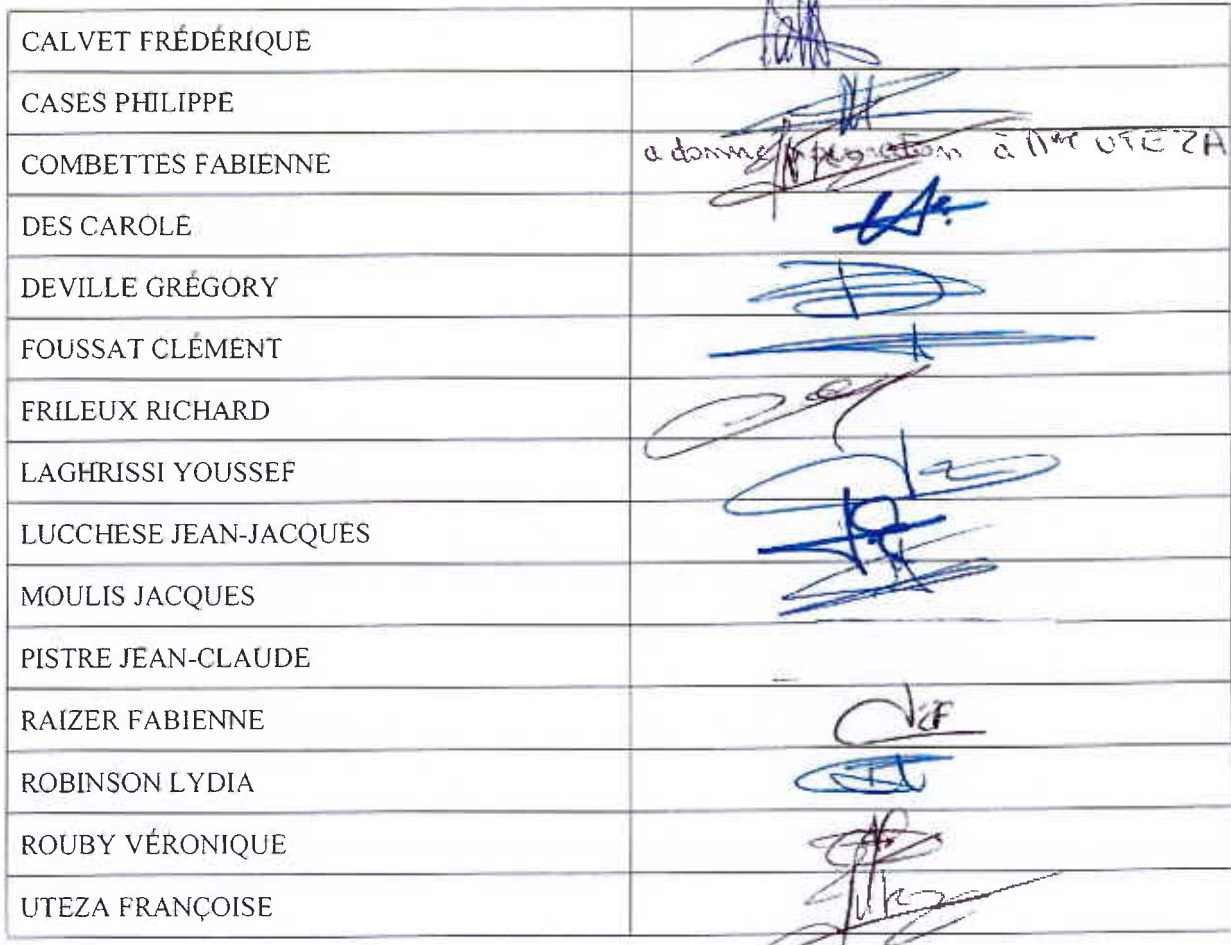 CALVET FRÉDÉRIQUE
CASES PHILIPPE
COMBETTES FABIENNE
a donné à Mme UTEZA
DES CAROLE
DEVILLE GRÉGORY
FOUSSAT CLÉMENT
FRILEUX RICHARD
LAGHRISSI YOUSSEF
LUCCHESE JEAN-JACQUES
MOULIS JACQUES
PISTRE JEAN-CLAUDE
RAIZER FABIENNE
ROBINSON LYDIA
ROUBY VÉRONIQUE
UTEZA FRANÇOISE